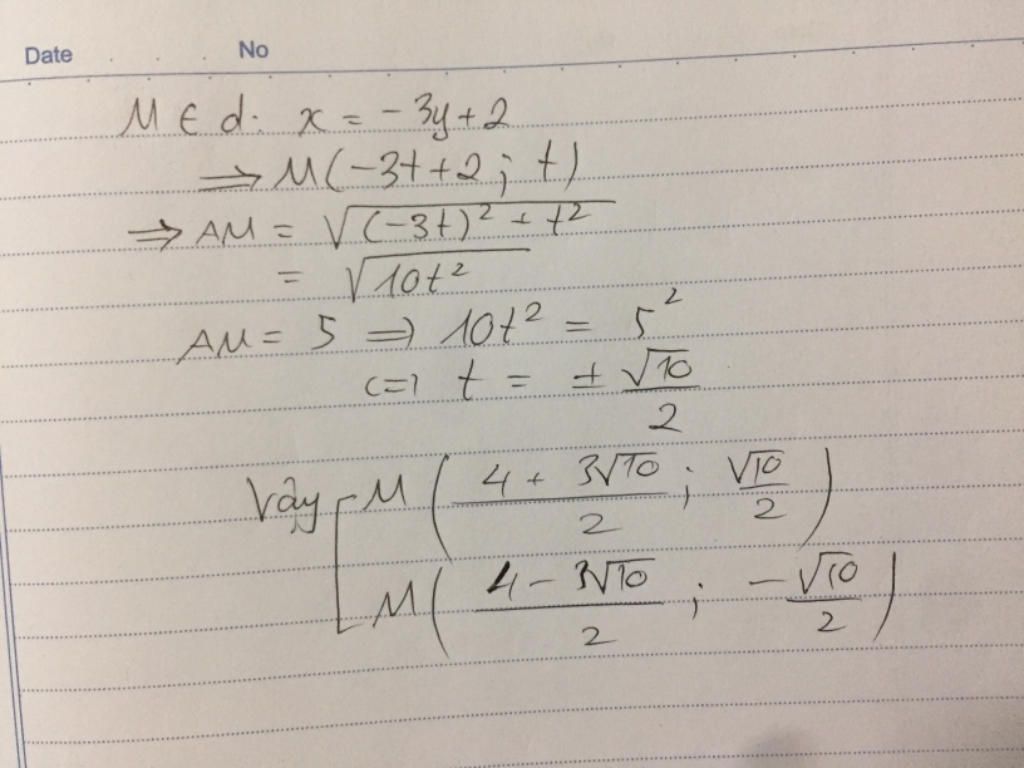 Date No
M ∈ d: x = -3y+2
⇒ M(-3t+2; t)
⇒ AM = √((-3t)² + t²)
= √(10t²)
AM = 5 ⇒ 10t² = 5²
<=> t = ± √10/2
Vậy [ M( (4 + 3√10)/2 ; √10/2 )
M( (4 - 3√10)/2 ; -√10/2 )